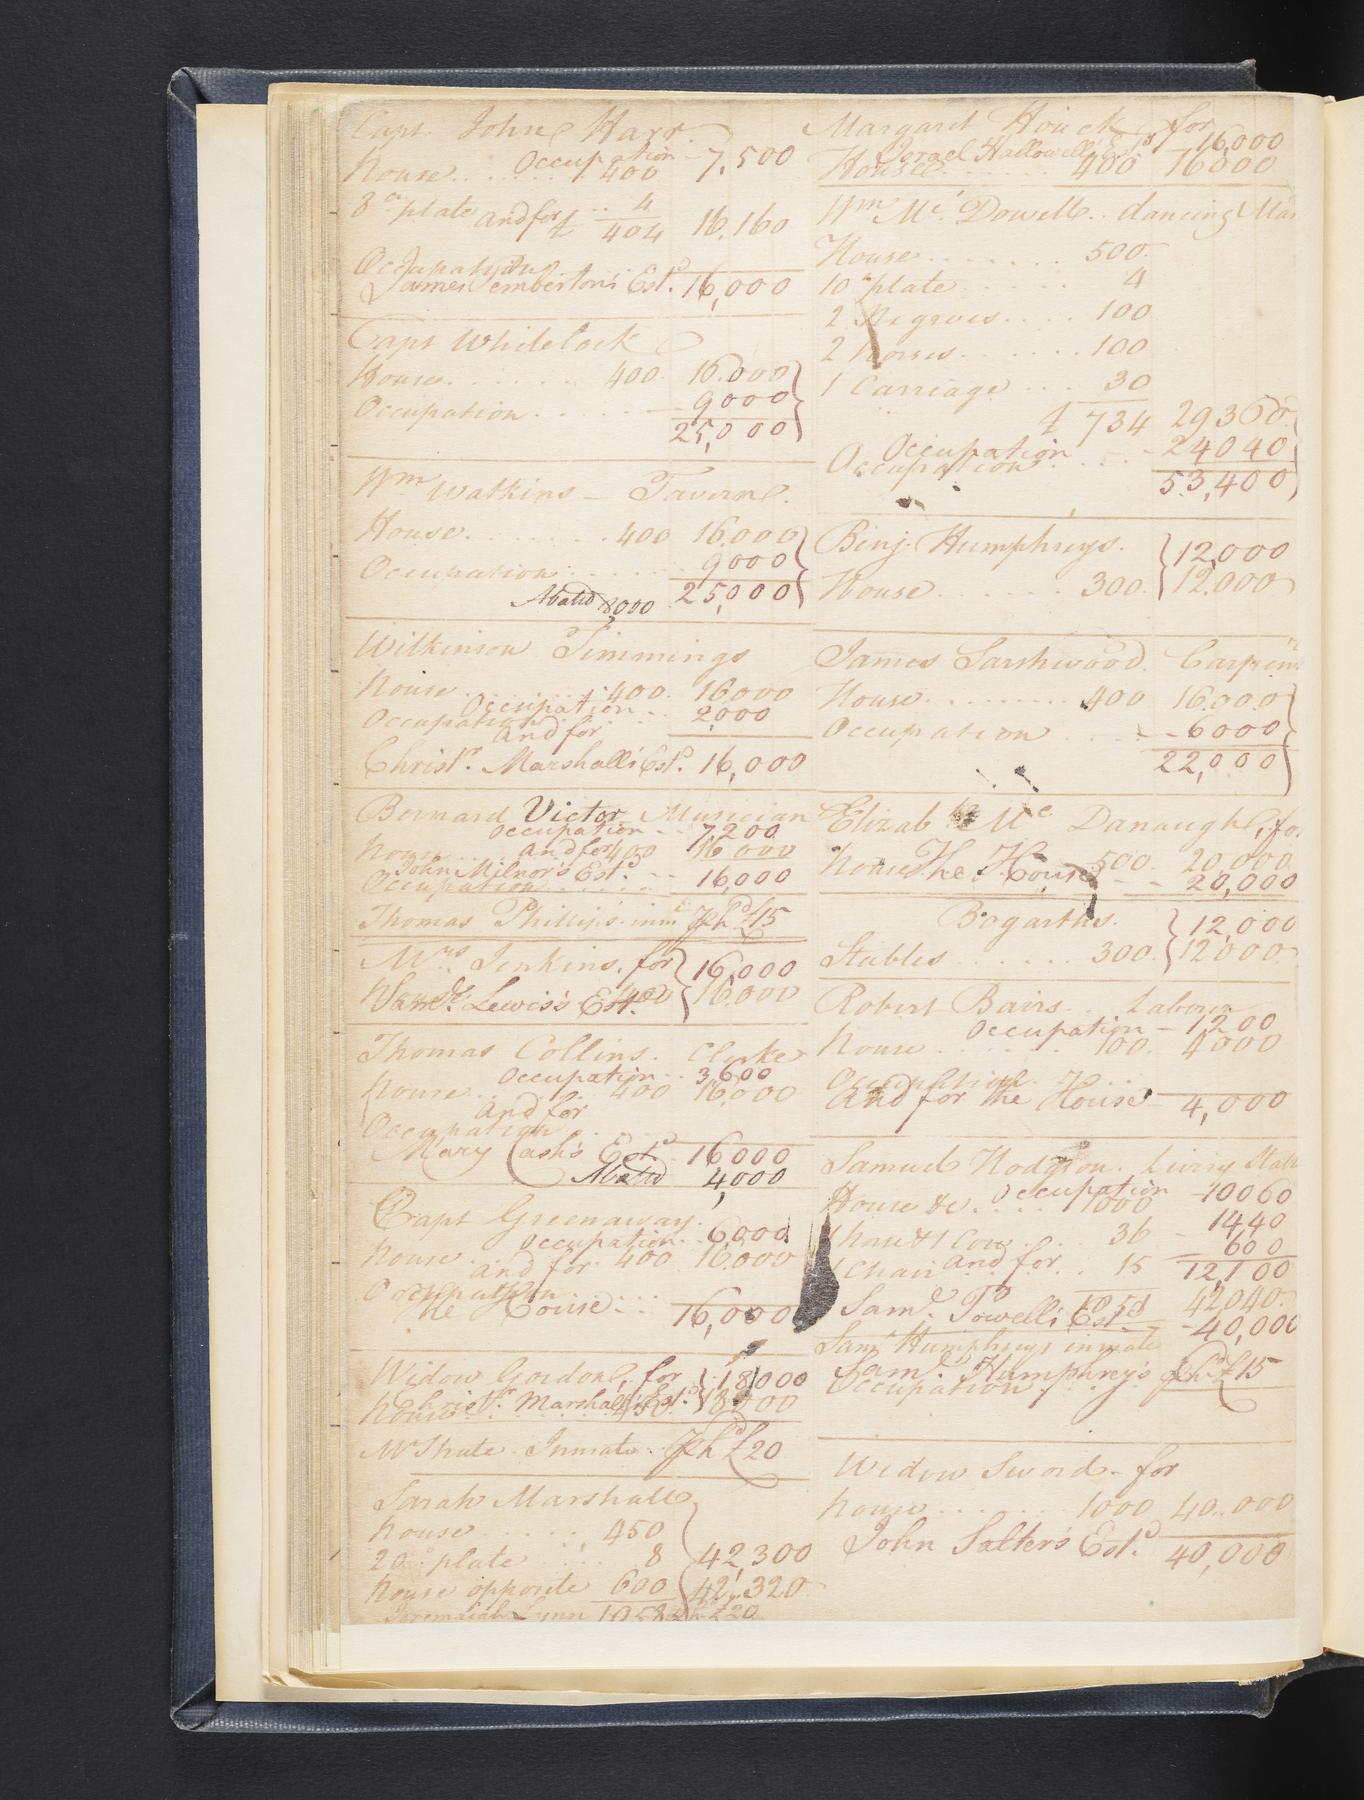 Capt. John Harr
Occupation - 7,500
house . . . . . . 400
8 oz. plate . . 4
and for £ 404 16,160
Occupation
James Pemberton's Est.d 16,000
Capt Whitelock
House . . . . . . . 400 16.000
Occupation . . . . . . 9000
25,000
Wm Watkins - Tavern
House . . . . . . . 400 16.000
Occupation . . . . . . 9000
25,000
Abated 8000
Wilkinson Timmings
house . . . . . . . 400 16000
Occupation . . 2000
Occupation
and for
Christr. Marshall's Est.d 16,000
Bernard Victor Musician
Occupation - - 7,200
house and for 400 16000
John Milnor's Est.d - - 16,000
Occupation . . . . . .
Thomas Phillips inmt. £15
Mrs. Jenkins, for 16,000
house 400 16.000
Saml. Lewis's Est.
Thomas Collins. Clerke
Occupation . . 3,600
house . . . 400 16,000
and for
Occupation
Mary Cash's Est.d 16000
Abated 4,000
Capt Greenaway.
Occupation - 6,000
house . . . 400 16.000
and for
Occupation
The House . . 16,000
Widow Gordon, for 18,000
Christr. Marshall's Est.d
house . . . 450 18000
McShute Inmate. £20
Sarah Marshall
house . . . . . 450
20 oz plate . . . 8 42,300
house opposite 600 42,320
Jeremiah Lynn 1058 £20
Margaret Houck for
16,000
Israel Hallowell's Est.d
House . . . . . . . 400 16000
Wm. Mc. Dowell . . dancing Mas
House . . . . . . . 500
10 oz plate . . . . . 4
2 Negroes . . . . 100
2 horses . . . . . . 100
1 Carriage . . . 30
£ 734 29360
Occupation - 24040
Occupation . . . .
53,400
Benj. Humphreys. 12,000
House . . . . . . 300. 12.000
James Sarshwood. Carpen
House . . . . . . . . 400 16.000
Occupation . . - 6000
22,000
Elizabth Mc Danaugh, fo
house 500. 20,000
The House - - 20,000
Bogarths. 12,000
Stables . . . . . . 300. 12000
Robert Bairs. . Laborer
Occupation - 1200
house . . . . . . 100. 4000
Occupation
And for the House 4,000
Samuel Hodgson. Livery Stab
Occupation - 10060
House &c. . . . . 1000
1 horse & 1 Cow . . 36 - 1440
600
1 Chair and for . . 15 12,100
1051 42040.
Saml. Powell's Est.d - 40,000
Saml Humphreys inmate
Saml. Humphrey's £15
Occupation . . . .
Widow Sword - for
house . . . . . . . 1000 40.000
John Salter's Est.d 40,000